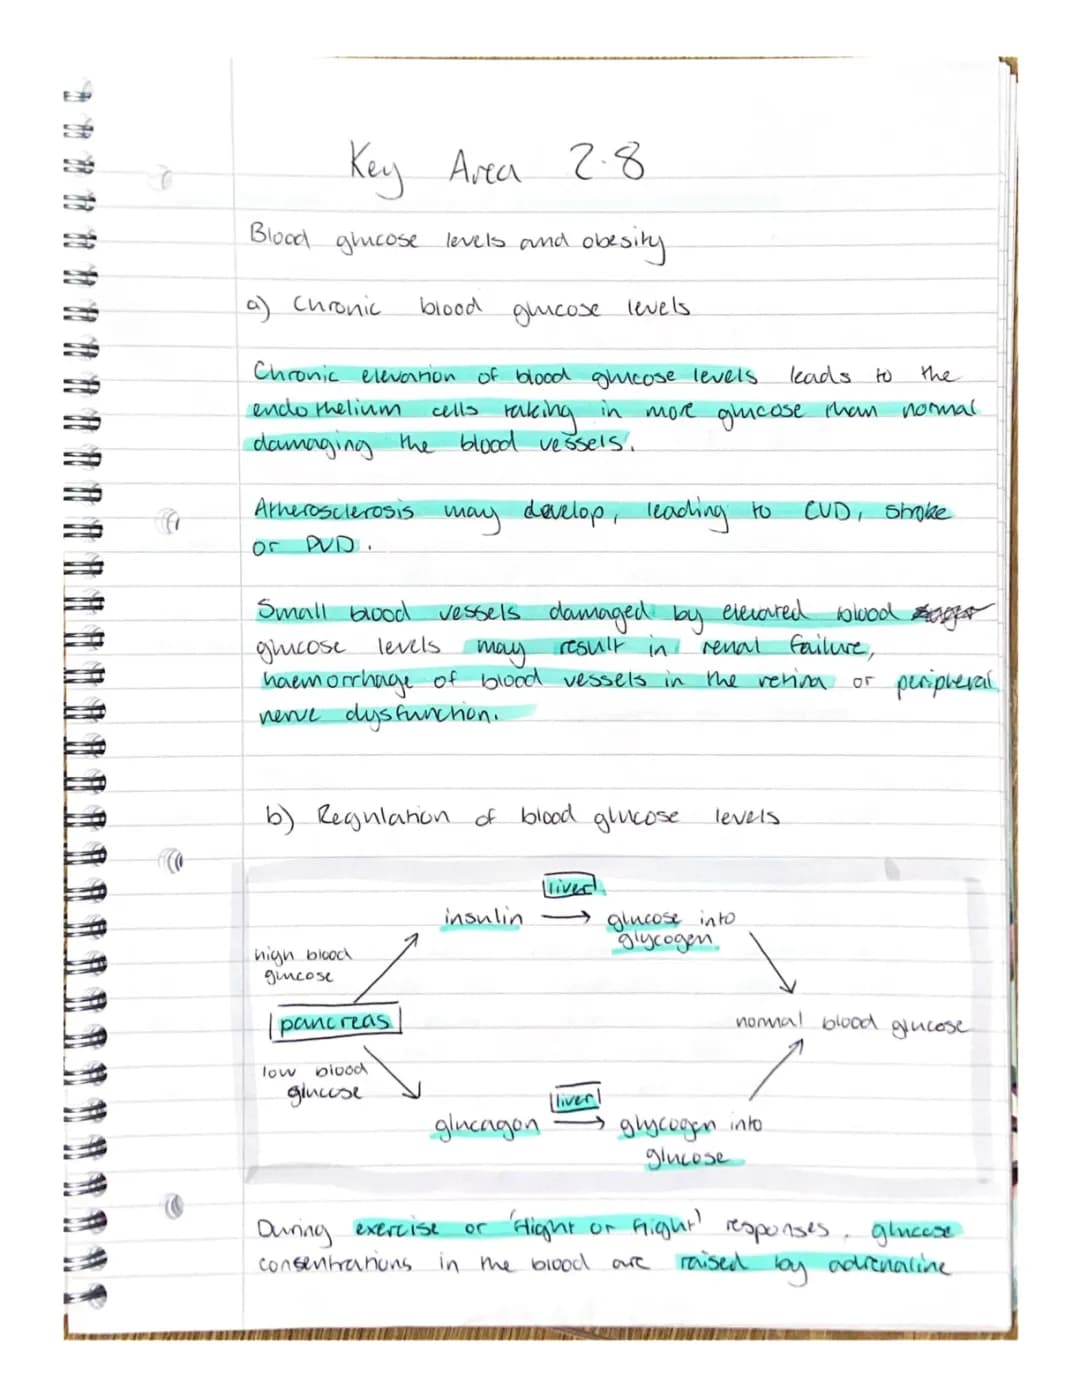 Key Area 2.8
Blood glucose levels and obesity
a) Chronic blood glucose levels
Chronic elevation of blood glucose levels leads to the
endothelium cells taking in more glucose than normal
damaging the blood vessels.
Atherosclerosis may develop, leading to CVD, stroke
or PVD.
Small blood vessels damaged by elevated blood
glucose levels may result in renal failure,
haemorrhage of blood vessels in the retina or peripheral
nerve dysfunction.
b) Regulation of blood glucose levels
liver
insulin → glucose into
glycogen
high blood
glucose
pancreas
normal blood glucose
low blood
glucose
liver
glucagon → glycogen into
glucose
During exercise or 'flight or fight' responses, glucose
consentrations in the blood are raised by adrenaline